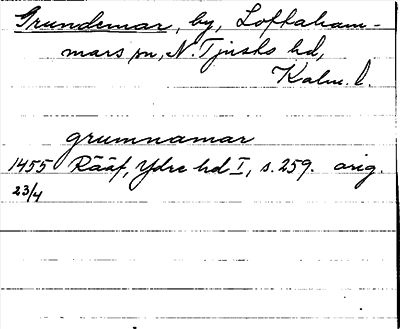 Grundemar, by, Loftaham-
mars sn, N. Tjusts hd,
Kalm. l.
grumnamar
1455 Rääf, Ydre hd I, s. 259. orig.
23/4